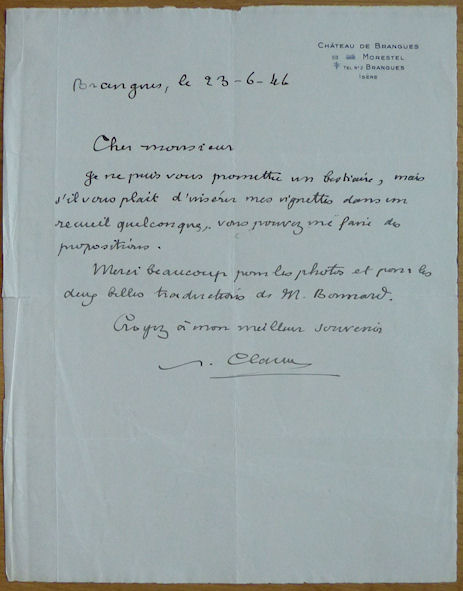 CHÂTEAU DE BRANGUES
MORESTEL
TEL. Nº2 BRANGUES
ISÈRE
Brangues, le 23-6-46
Cher monsieur
Je ne puis vous promettre un bestiaire, mais
s'il vous plait d'insérer mes vignettes dans un
recueil quelconque, vous pouvez me faire des
propositions.
Merci beaucoup pour les photos et pour les
deux belles traductions de M. Bonnard.
Croyez à mon meilleur souvenir